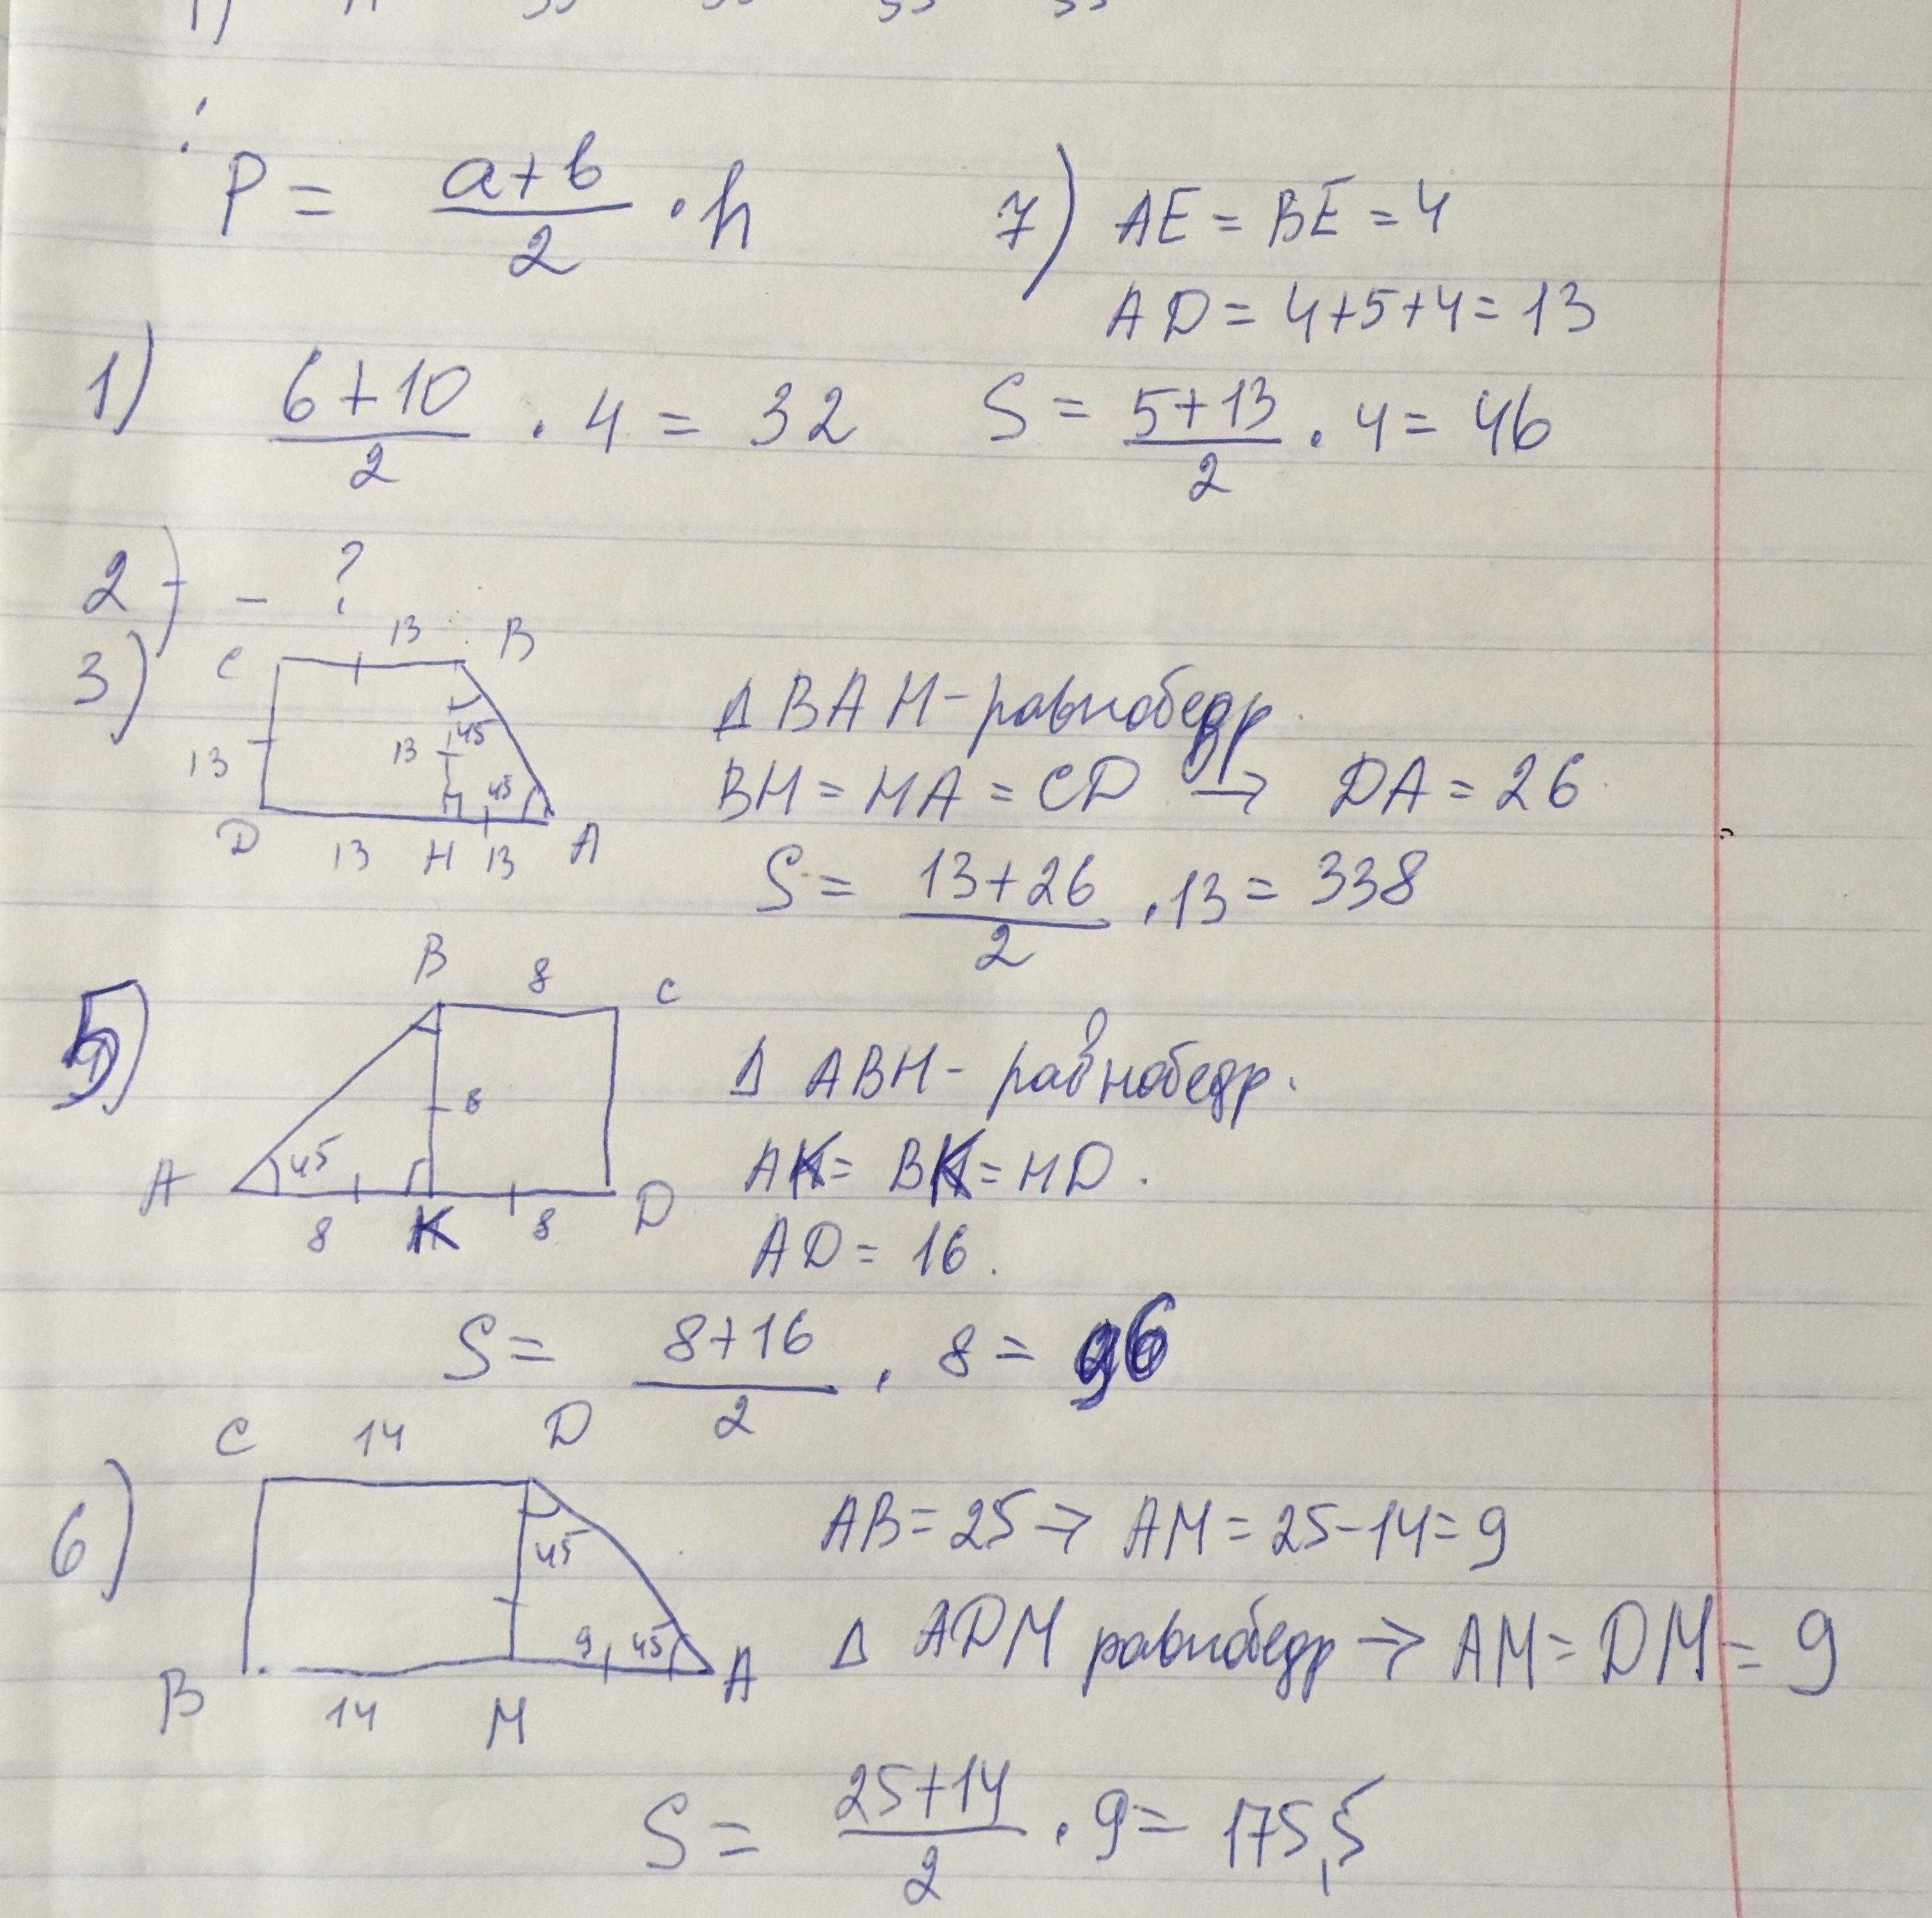 P = a+b/2 · h
1) 6+10/2 · 4 = 32
7) AE = BE = 4
AD = 4+5+4 = 13
S = 5+13/2 · 4 = 46
2) - ?
3)
C 13 B
13 13 45
45
D 13 H 13 A
Δ BAH - равнобедр.
BH = HA = CD → DA = 26
S = 13+26/2 · 13 = 338
5)
B 8 C
8
A 45
8 K 8 D
Δ ABH - равнобедр.
AK = BK = HD.
AD = 16.
S = 8+16/2 · 8 = 96
6)
C 14 D
45
9 45
B 14 M A
AB = 25 → AM = 25-14 = 9
Δ ADM равнобедр → AM = DM = 9
S = 25+14/2 · 9 = 175,5